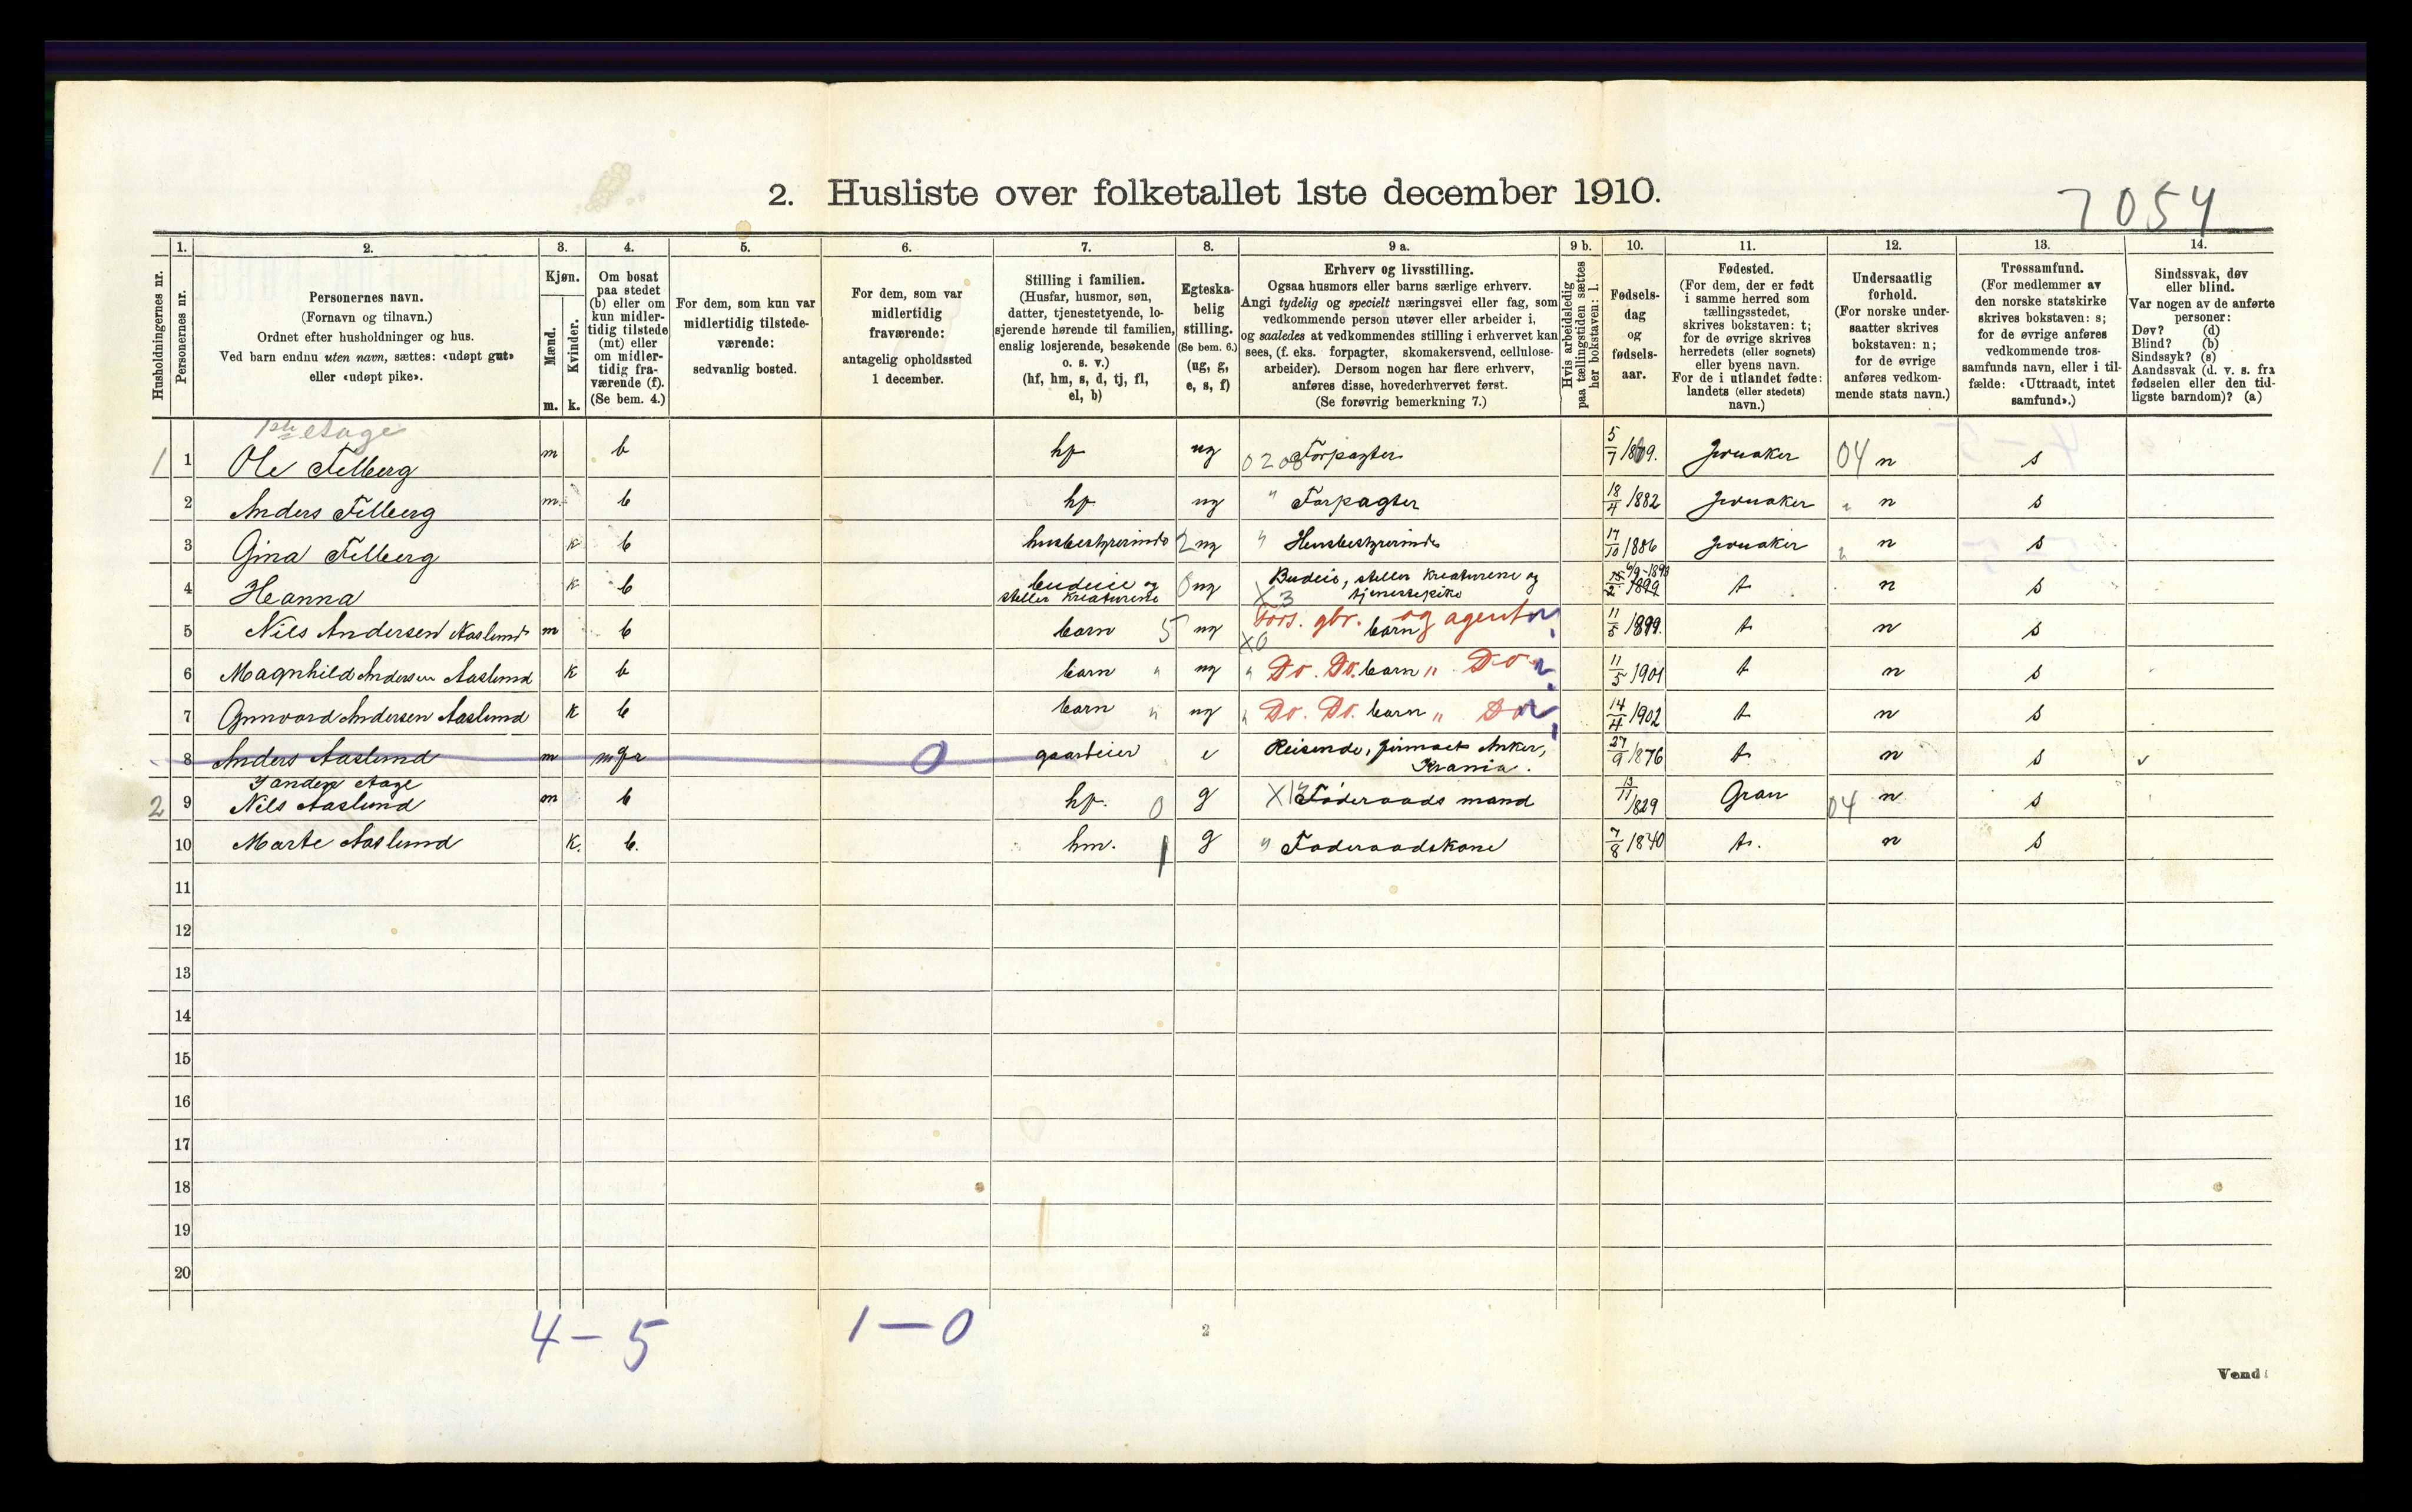 2. Husliste over folketallet 1ste december 1910.
7054
Husholdningernes nr.
1.
Personernes nr.
2.
Personernes navn.
(Fornavn og tilnavn.)
Ordnet efter husholdninger og hus.
Ved barn endnu uten navn, sættes: «udøpt gut»
eller «udøpt pike».
3.
Kjøn.
Mænd.
Kvinder.
m. k.
4.
Om bosat
paa stedet
(b) eller om
kun midler-
tidig tilstede
(mt) eller
om midler-
tidig fra-
værende (f).
(Se bem. 4.)
5.
For dem, som kun var
midlertidig tilstede-
værende:
sedvanlig bosted.
6.
For dem, som var
midlertidig
fraværende:
antagelig opholdssted
1 december.
7.
Stilling i familien.
(Husfar, husmor, søn,
datter, tjenestetyende, lo-
sjerende hørende til familien,
enslig losjerende, besøkende
o. s. v.)
(hf, hm, s, d, tj, fl,
el, b)
8.
Egteska-
belig
stilling.
(Se bem. 6.)
(ug, g,
e, s, f)
9 a.
Erhverv og livsstilling.
Ogsaa husmors eller barns særlige erhverv.
Angi tydelig og specielt næringsvei eller fag, som
vedkommende person utøver eller arbeider i,
og saaledes at vedkommendes stilling i erhvervet kan
sees, (f. eks. forpagter, skomakersvend, cellulose-
arbeider). Dersom nogen har flere erhverv,
anføres disse, hovederhvervet først.
(Se forøvrig bemerkning 7.)
9 b.
Hvis arbeidsledig
paa tællingstiden sættes
her bokstaven: l.
10.
Fødsels-
dag
og
fødsels-
aar.
11.
Fødested.
(For dem, der er født
i samme herred som
tællingsstedet,
skrives bokstaven: t;
for de øvrige skrives
herredets (eller sognets)
eller byens navn.
For de i utlandet fødte:
landets (eller stedets)
navn.)
12.
Undersaatlig
forhold.
(For norske under-
saatter skrives
bokstaven: n;
for de øvrige
anføres vedkom-
mende stats navn.)
13.
Trossamfund.
(For medlemmer av
den norske statskirke
skrives bokstaven: s;
for de øvrige anføres
vedkommende tros-
samfunds navn, eller i til-
fælde: «Uttraadt, intet
samfund».)
14.
Sindssvak, døv
eller blind.
Var nogen av de anførte
personer:
Døv? (d)
Blind? (b)
Sindssyk? (s)
Aandssvak (d. v. s. fra
fødselen eller den tid-
ligste barndom)? (a)
1ste etage
1 1 Ole Felberg m b hf ug 0208 Forpagter 5/7 1879. Jevnaker 04 n s
2 Anders Felberg m. b hf ug " Forpagter 18/4 1882 Jevnaker " n s
3 Gina Felberg k b husbestyrerinde 2 ug " Husbestyrerinde 17/10 1886 Jevnaker " n s
4 Hanna k b budeie og steller kreaturene 0 ug X3 Budeie, steller kreaturene og tjenestepike 6/9-1893 t n s
5 Nils Andersen Aaslund m b barn 5 ug X0 Fors. gbr. barn og agent 11/5 1899. t. n s
6 Magnhild Andersen Aaslund k b barn " ug " Do. Do. barn " Do 11/5 1901 t n s
7 Gunvord Andersen Aaslund k b barn " ug " Do. Do. barn " Do 14/4 1902 t. n s
8 Anders Aaslund m 0 gaardeier e Reisende, firmaet Anker, Krania. 27/9 1876 t. n s
I anden etage
2 9 Nils Aaslund m b hf. 0 g Føderaads mand 13/11 1829 Gran 04 n s
10 Marte Aaslund k. b. hm. 1 g " Føderaadskone 7/8 1840 t. n s
11
12
13
14
15
16
17
18
19
20
4 - 5 1 - 0
2
Vend